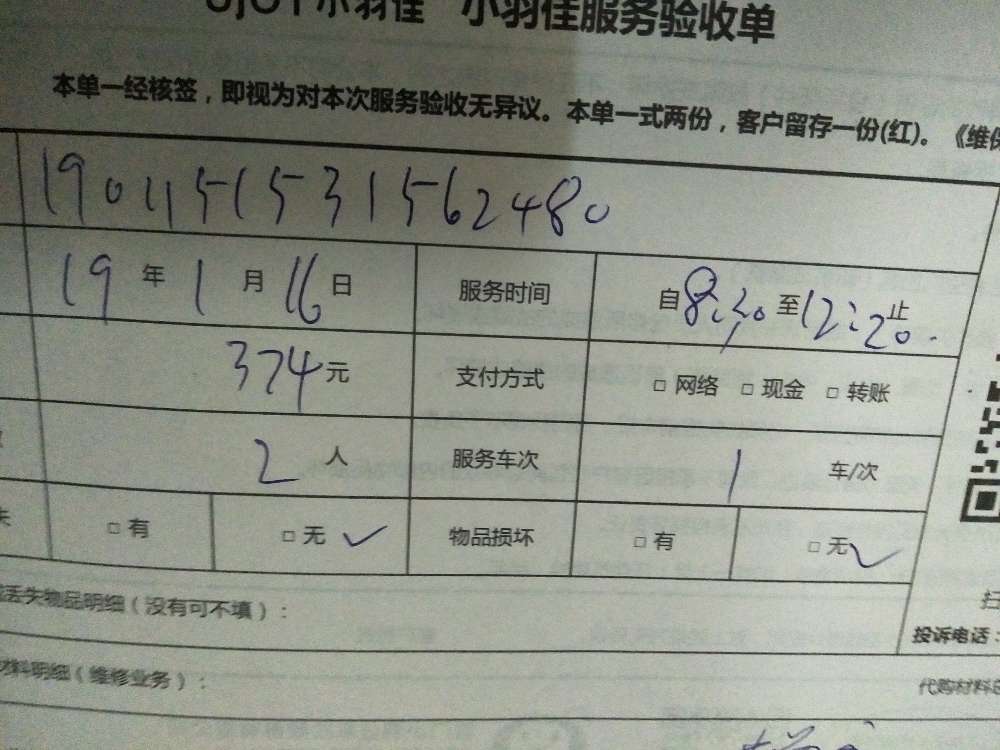 小羽佳 小羽佳服务验收单
本单一经核签，即视为对本次服务验收无异议。本单一式两份，客户留存一份(红)。《维保
1901151531562480
19 年 1 月 16 日 服务时间 自 8:30 至 12:20 止
374 元 支付方式 □ 网络 □ 现金 □ 转账
2 人 服务车次 1 车/次
失 □ 有 □ 无 ✓ 物品损坏 □ 有 □ 无 ✓
丢失物品明细（没有可不填）： 投诉电话：
材料明细（维修业务）： 代购材料总
扫